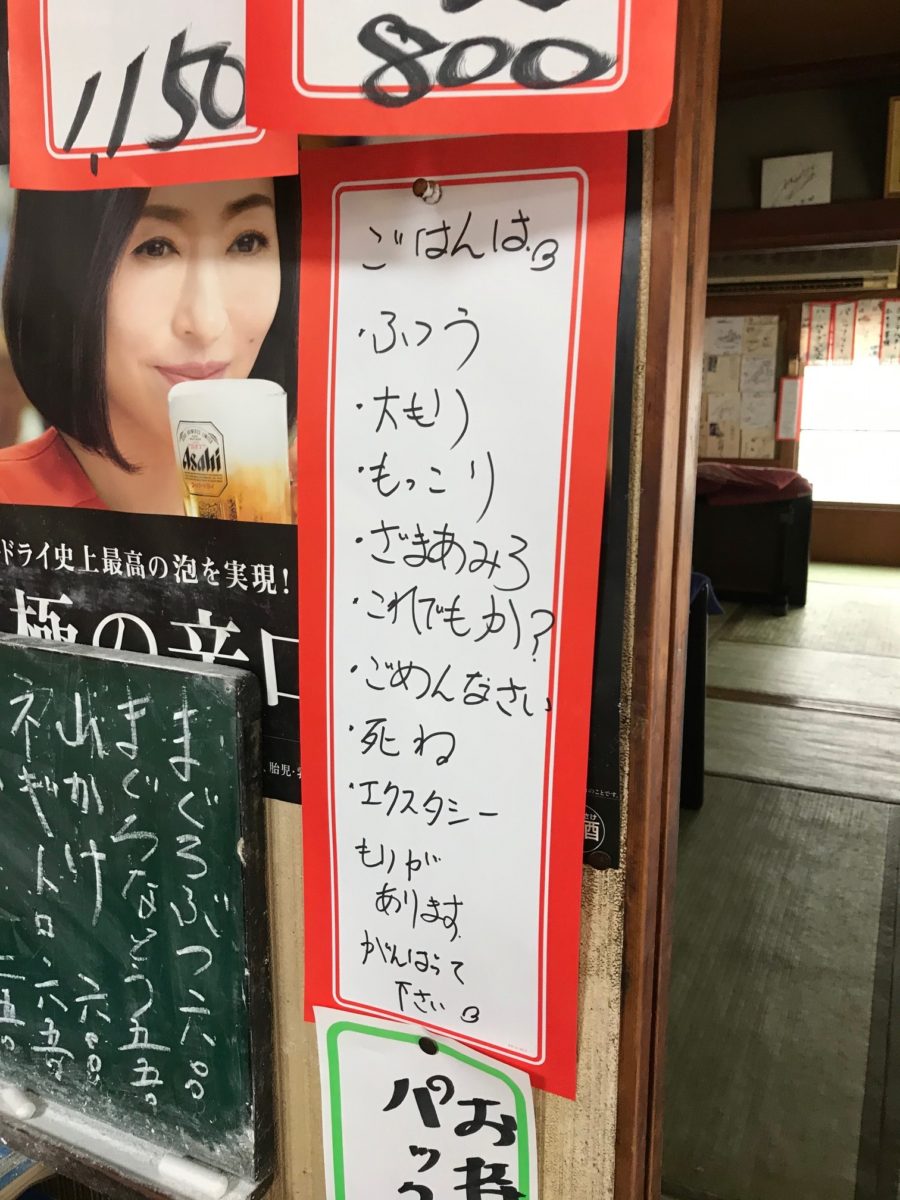 1,150
800
ごはんは
・ふつう
・大もり
・もっこり
・ざまあみろ
・これでもか?
・ごめんなさい
・死ね
・エクスタシー
もりが
あります
がんばって
下さい
Asahi
ドライ史上最高の泡を実現!
極の辛口
胎児・
のことです。
さけ
酒
まぐろぶつ六〇〇
まぐろなとう五五〇
山かけ 六〇〇
ネギトロ 六五〇
パック